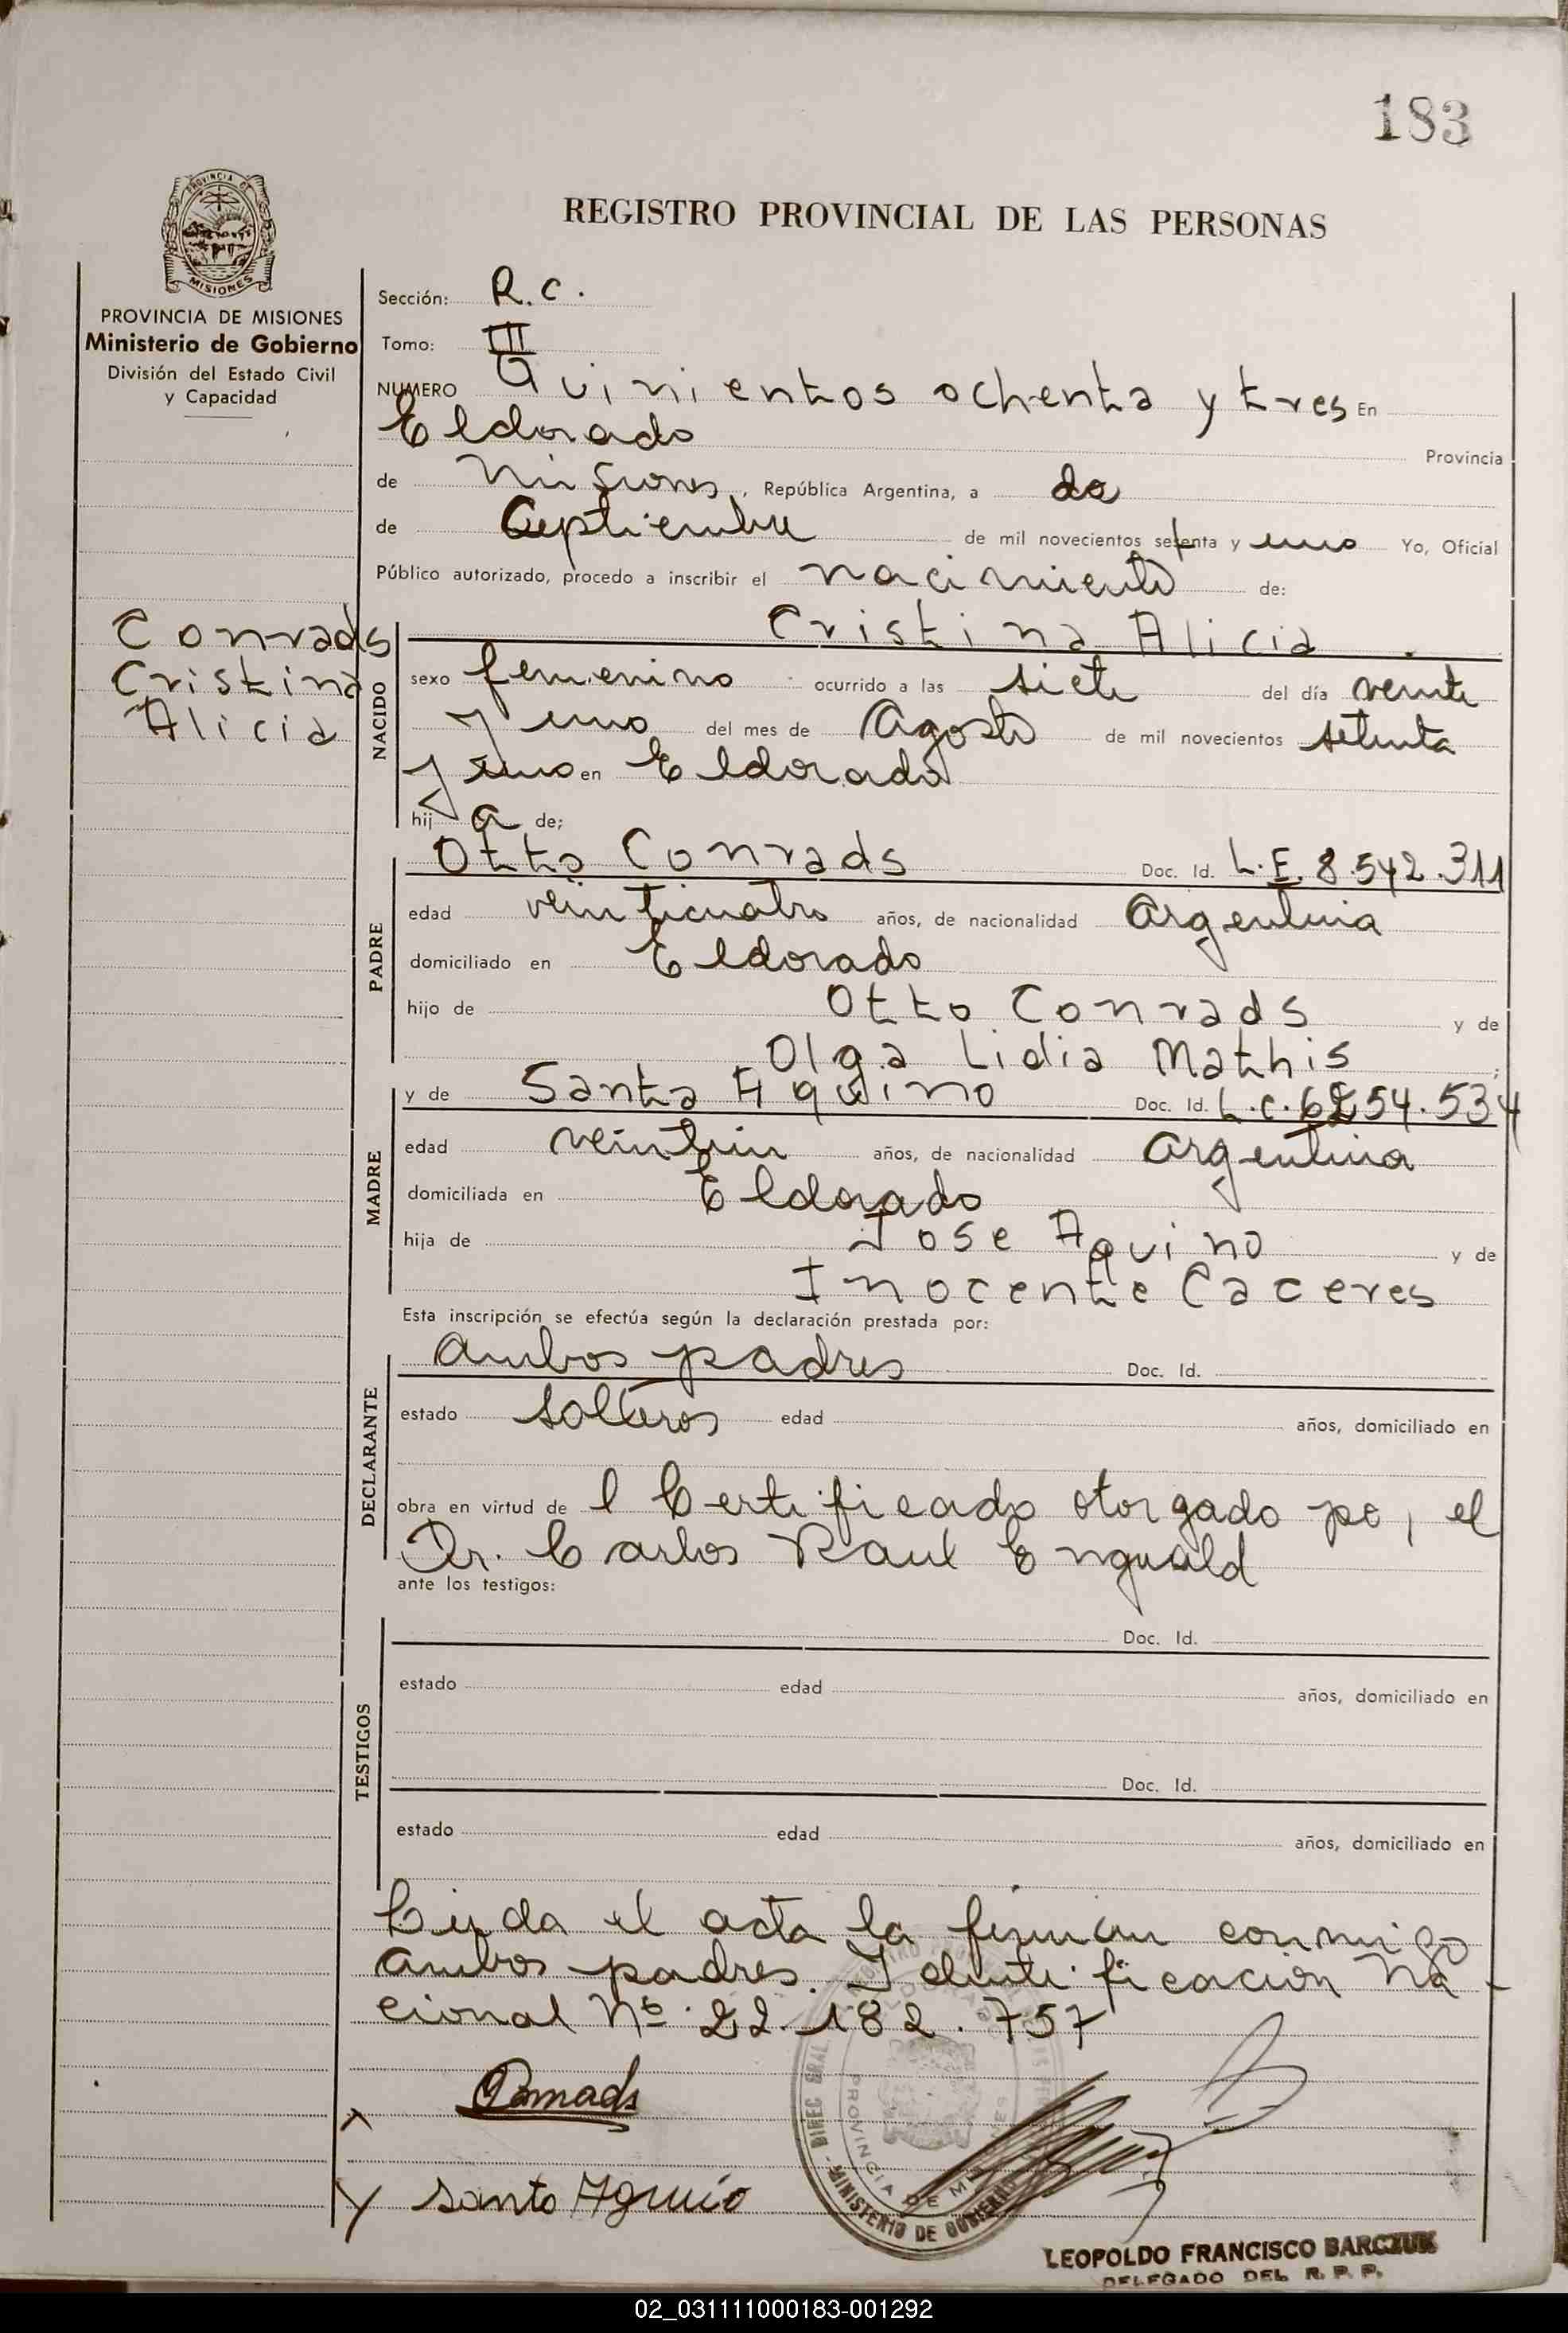 183
PROVINCIA DE
MISIONES
REGISTRO PROVINCIAL DE LAS PERSONAS
PROVINCIA DE MISIONES
Ministerio de Gobierno
División del Estado Civil
y Capacidad
Sección: R.C.
Tomo: III
NUMERO Quinientos ochenta y tres En
Eldorado Provincia
de Misiones, República Argentina, a do
de Septiembre de mil novecientos setenta y uno Yo, Oficial
Público autorizado, procedo a inscribir el nacimiento de:
Conrads
Cristina
Alicia
NACIDO
Cristina Alicia.
sexo femenino ocurrido a las siete del día veinte
y uno del mes de Agosto de mil novecientos setenta
y uno en Eldorado
hij a de;
PADRE
Otto Conrads Doc. Id. L.E. 8.542.311
edad veinticuatro años, de nacionalidad Argentina
domiciliado en Eldorado
hijo de Otto Conrads y de
Olga Lidia Mathis;
MADRE
y de Santa Aquino Doc. Id. L.C. 54.534
edad años, de nacionalidad Argentina
domiciliada en Eldorado
hija de Jose Aquino y de
Inocente Caceres
Esta inscripción se efectúa según la declaración prestada por:
DECLARANTE
Ambos padres Doc. Id.
estado solteros edad años, domiciliado en
obra en virtud de l Certificado otorgado po, el
Dr. Carlos Raul Enguald
ante los testigos:
TESTIGOS
Doc. Id.
estado edad años, domiciliado en
Doc. Id.
estado edad años, domiciliado en
el acta la firman conmigo
ambos padres. Identificación Na-
cional Nº 22.182.757
Conrads
DIREC GRAL
PROVINCIA DE
MINISTERIO DE GOBIERNO
Y Santa Aquino
LEOPOLDO FRANCISCO BARCZUK
DELEGADO DEL R. P. P.
02_031111000183-001292